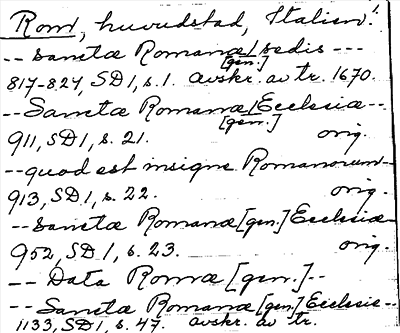 Rom, huvudstad, Italien.
-- Sanctæ Romanæ [gen.] sedis ---
817-824, SD 1, s. 1. avskr. av tr. 1670.
-- Sanctæ Romanæ [gen.] Ecclesiæ --
911, SD 1, s. 21. orig.
-- quod est insigne Romanorum --
913, SD 1, s. 22. orig.
-- Sanctæ Romanæ [gen.] Ecclesiæ --
952, SD 1, s. 23. orig.
-- Data Romæ [gen.] --
-- Sanctæ Romanæ [gen.] Ecclesie --
1133, SD 1, s. 47. avskr. av tr.